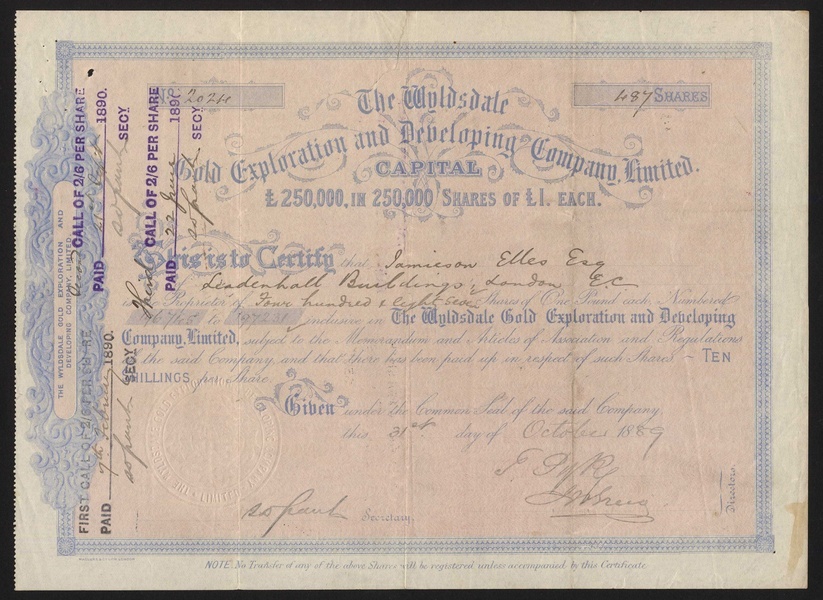 No. 2024
487 SHARES
The Wyldsdale
Gold Exploration and Developing Company, Limited.
CAPITAL
£250,000, IN 250,000 SHARES OF £1. EACH.
This is to Certify that Jamieson Elles Esq
of Leadenhall Buildings, London, E.C
is the Proprietor of Four hundred & eighty seven Shares of One Pound each, Numbered
to inclusive in The Wyldsdale Gold Exploration and Developing
Company, Limited, subject to the Memorandum and Articles of Association and Regulations
of the said Company and that there has been paid up in respect of such Shares - TEN
SHILLINGS per Share
Given under the Common Seal of the said Company,
this 31st day of October 1889
Secretary.
Directors.
NOTE. No Transfer of any of the above Shares will be registered unless accompanied by this Certificate
THE WYLDSDALE GOLD EXPLORATION AND
DEVELOPING COMPANY, LIMITED
FIRST CALL OF 2/6 PER SHARE
PAID 1890.
SECY
Second CALL OF 2/6 PER SHARE
PAID 1890.
SECY
Third CALL OF 2/6 PER SHARE
PAID 22 June 1890.
SECY